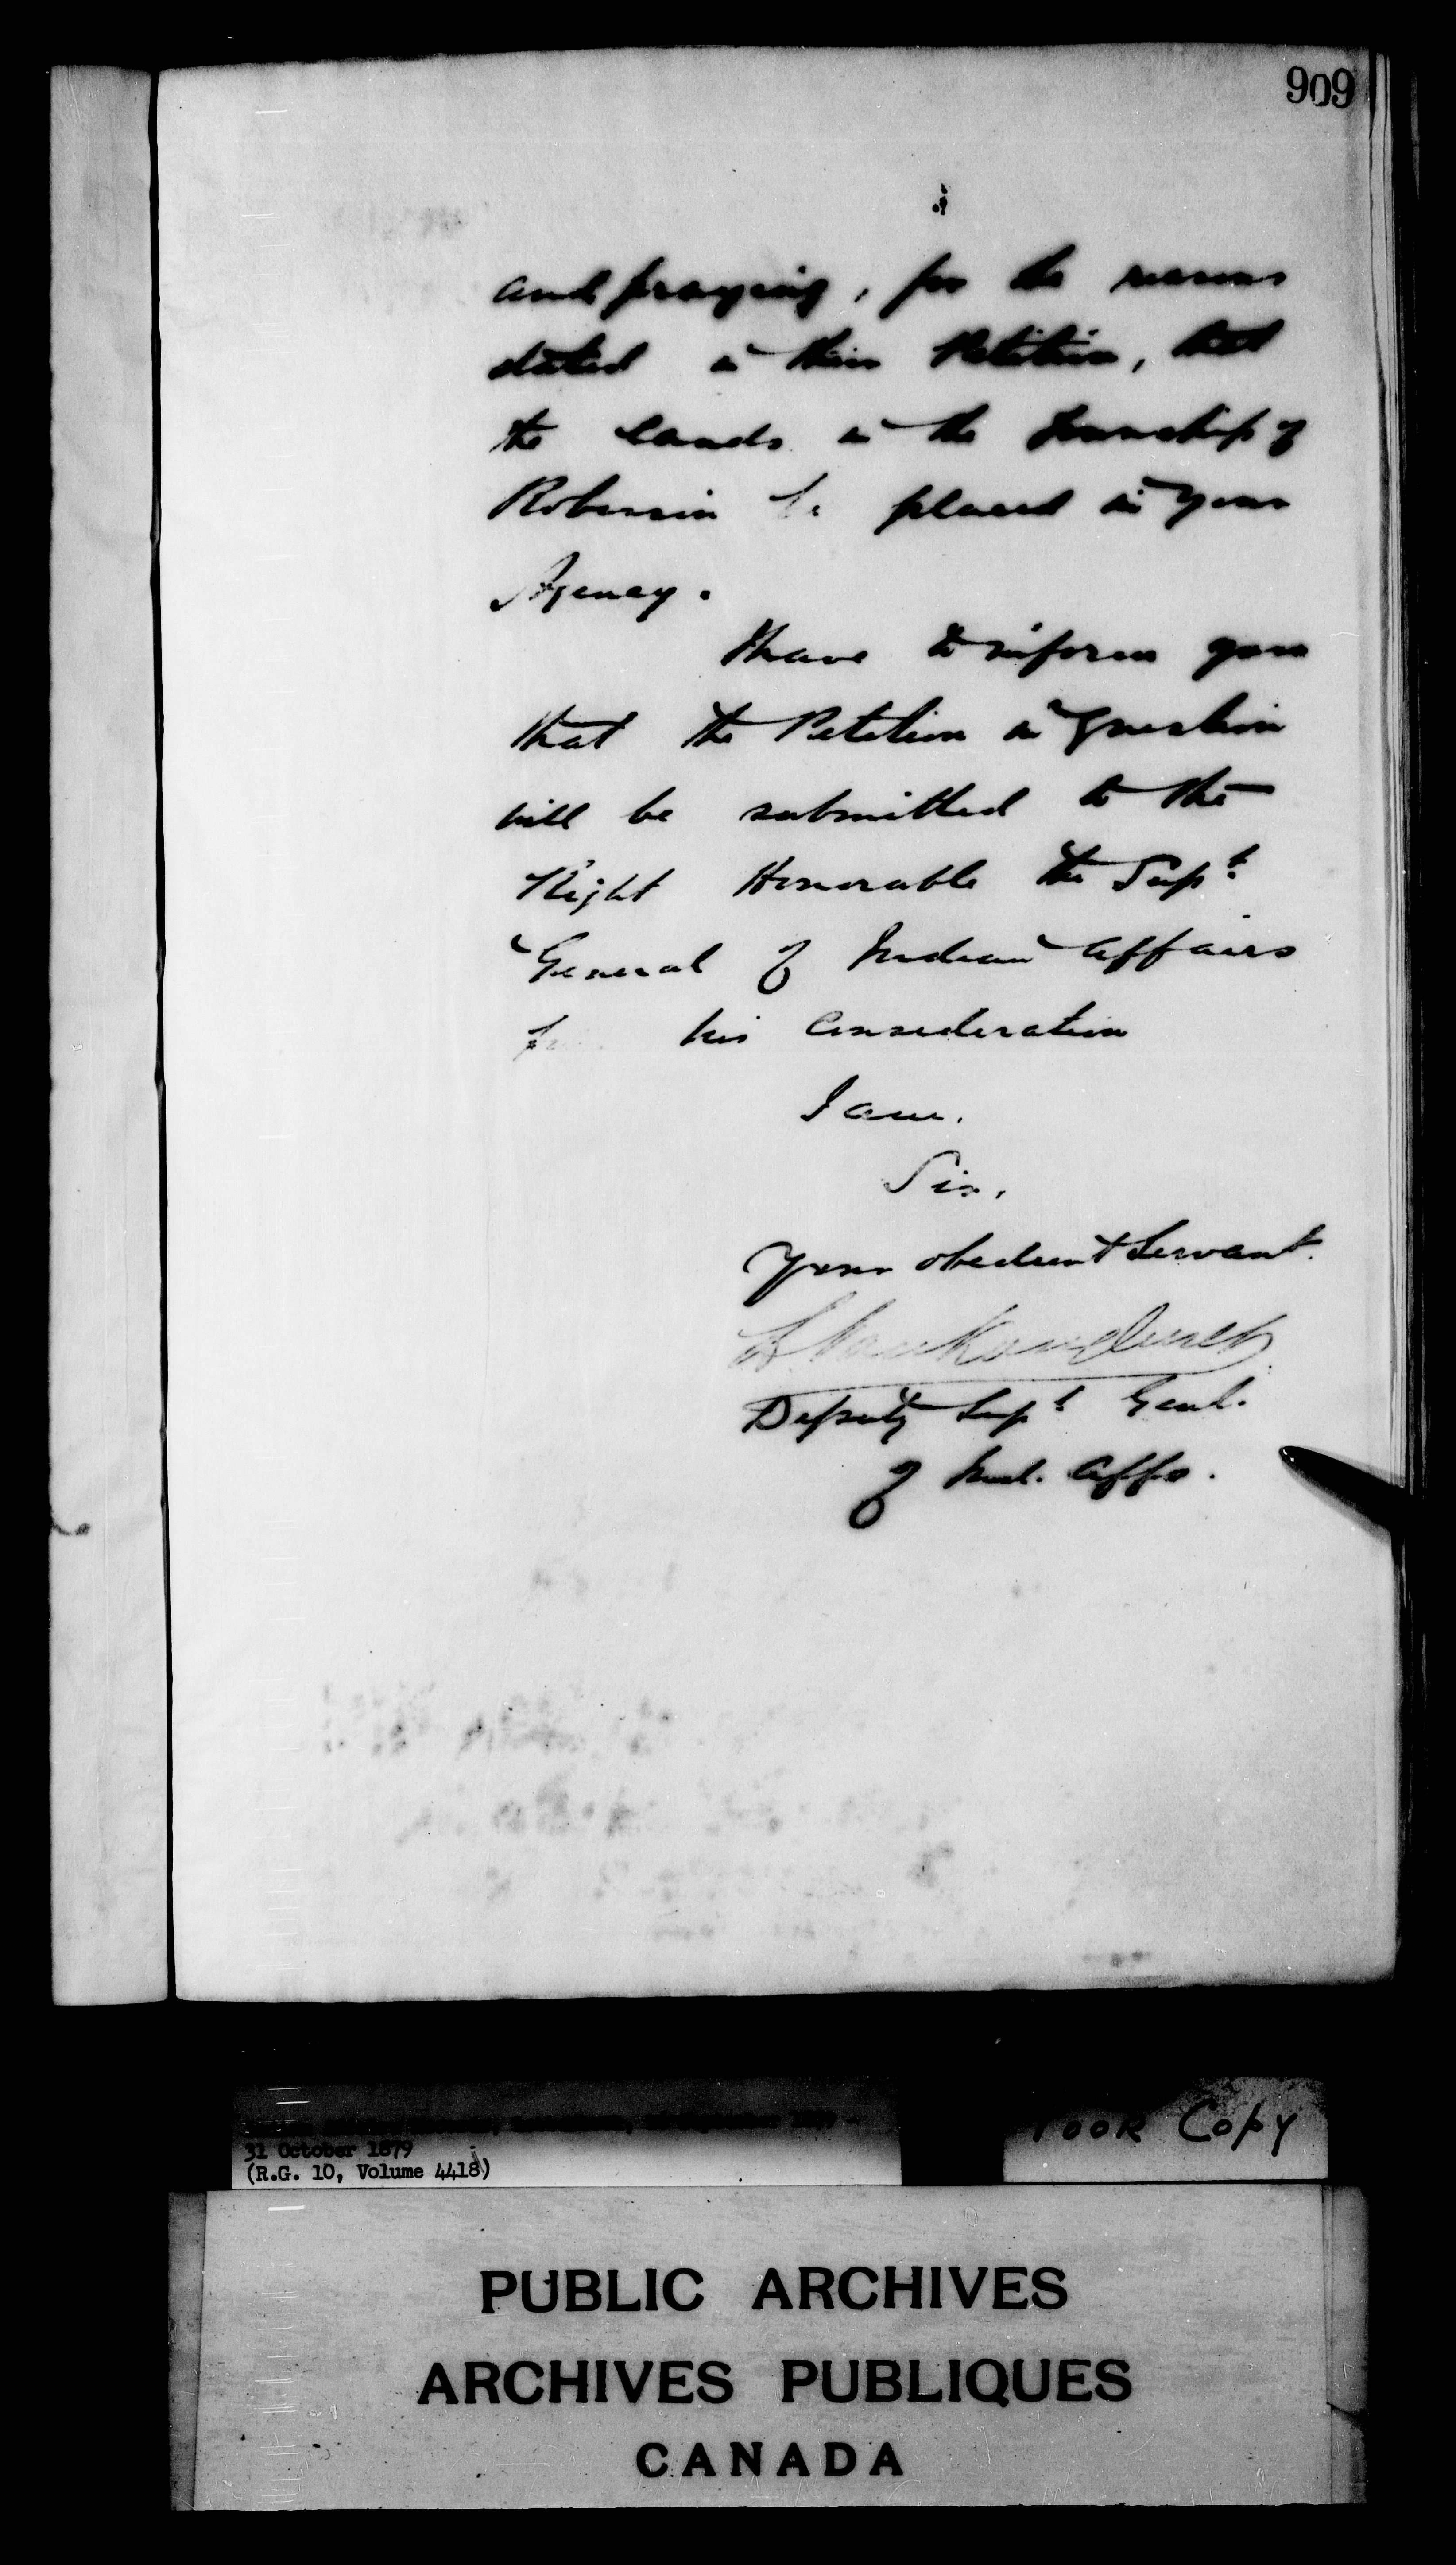 909
and praying, for the reasons
stated in their Petition, that
the lands in the Township of
Robinson be placed in your
Agency.
I have to inform you
that the Petition in question
will be submitted to the
Right Honorable the Supt
General of Indian Affairs
for his consideration
I am.
Sir,
Your obedient Servant.
L VanKoughnet
Deputy Supt Genl.
of Ind. Affs.
31 October 1879
(R.G. 10, Volume 4418)
Took Copy
PUBLIC ARCHIVES
ARCHIVES PUBLIQUES
CANADA